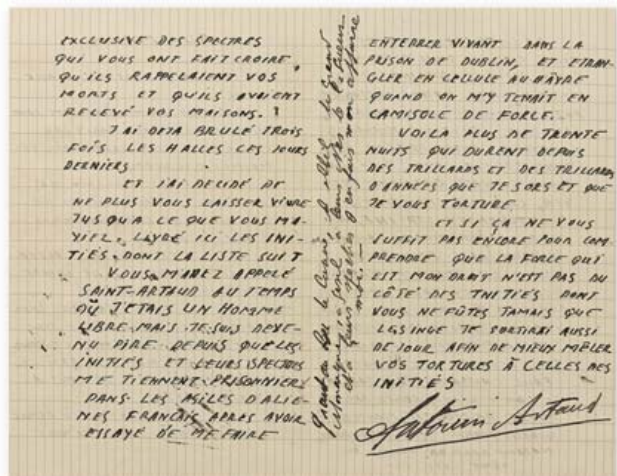 EXCLUSIVE DES SPECTRES
QUI VOUS ONT FAIT CROIRE
QU'ILS RAPPELAIENT VOS
MORTS ET QU'ILS AVAIENT
RELEVÉ VOS MAISONS.
J'AI DEJA BRULÉ TROIS
FOIS LES HALLES CES JOURS
DERNIERS
ET J'AI DECIDÉ DE
NE PLUS VOUS LAISSER VIVRE
JUSQU'A CE QUE VOUS M'A-
YIEZ LIVRÉ ICI LES INI-
TIÉS, DONT LA LISTE SUIT
VOUS M'AVEZ APPELÉ
SAINT-ARTAUD AU TEMPS
OÙ J'ETAIS UN HOMME
LIBRE MAIS JE SUIS DEVE-
NU PIRE DEPUIS QUE LES
INITIÉS ET LEURS SPECTRES
ME TIENNENT PRISONNIER
DANS LES ASILES D'ALIE-
NES FRANÇAIS APRES AVOIR
ESSAYÉ DE ME FAIRE
ENTERRER VIVANT DANS LA
PRISON DE DUBLIN, ET ETRAN-
GLER EN CELLULE AU HÂVRE
QUAND ON M'Y TENAIT EN
CAMISOLE DE FORCE.
VOILA PLUS DE TRENTE
NUITS QUI DURENT DEPUIS
DES TRILLARDS ET DES TRILLARDS
D'ANNÉES QUE JE SORS ET QUE
JE VOUS TORTURE
ET SI ÇA NE VOUS
SUFFIT PAS ENCORE POUR COM-
PRENDRE QUE LA FORCE QUI
EST MON DROIT N'EST PAS DU
CÔTÉ DES INITIÉS DONT
VOUS NE FÛTES JAMAIS QUE
LES JE SORTIRAI AUSSI
DE JOUR AFIN DE MIEUX MÊLER
VOS TORTURES À CELLES DES
INITIÉS
Antonin Artaud